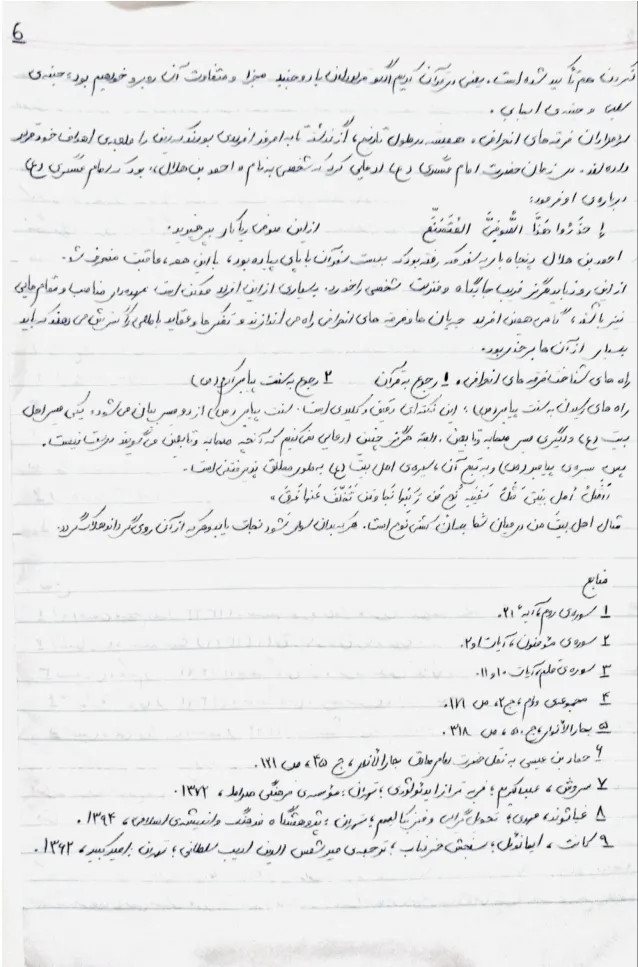 6
کردن هم تأکید شده است. یعنی در قرآن کریم الگو با دو جنبه مجزا و متفاوت آن روبرو خواهیم بود، جنبه‌ی
سلبی و جنبه‌ی ایجابی.
فرقه‌های انحرافی، همیشه در طول تاریخ، از گذشته تا به امروز افرادی بودند که دین را ملعبه‌ی اهداف خود قرار
داده‌اند. در زمان حضرت امام عسکری (ع) شخصی به نام «احمد بن هلال» بود که امام عسکری (ع)
درباره‌ی او فرمود:
إحذَروا هَذَا الصُّوفِیَّ المُتَصَنِّعَ از این صوفی ریاکار بپرهیزید.
احمد بن هلال پنجاه بار به سفر مکه رفته بود که بیست سفر آن با پای پیاده بود، با این همه، عاقبت منحرف شد.
از این رو نباید هرگز فریب جایگاه و شخصی را خورد. بسیاری از این افراد ممکن است عهده‌دار مناصب و مقام‌هایی
نیز باشند، گاهی همین افراد جریان‌ها و فرقه‌های انحرافی راه می‌اندازند و تفکرها و عقاید باطلی را گسترش می‌دهند که باید
بسیار از آن‌ها برحذر بود.
راه‌های شناخت فرقه‌های انحرافی: ۱ رجوع به قرآن ۲ رجوع به سنت پیامبر اکرم (ص)
راه‌های رسیدن به سنت پیامبر (ص): این نکته‌ای دقیق و کلیدی است. سنت پیامبر (ص) از دو مسیر بیان می‌شود، یکی مسیر اهل
بیت (ع) و دیگری مسیر صحابه و تابعین. البته هرگز چنین ادعایی نمی‌کنیم که آنچه صحابه و تابعین می‌گویند درست نیست.
پس سیره‌ی پیامبر (ص) و به تبع آن، سیره‌ی اهل بیت (ع) به طور مطلق پذیرفتنی است.
مَثَلُ أهلِ بَیتی مَثَلُ سَفینَةِ نُوحٍ مَن رَکِبَها نَجا وَ مَن تَخَلَّفَ عَنها غَرِقَ.
مثال اهل بیت من در میان شما بسان کشتی نوح است. هر که بدان سوار شود نجات یابد و هر که از آن روی گرداند هلاک گردد.
منابع
۱ سوره‌ی روم، آیه ۲۱.
۲ سوره‌ی مؤمنون، آیات ۱ و ۲.
۳ سوره‌ی قلم، آیات ۱۰ و ۱۱.
۴ مجموعه‌ی ورام، ج ۲، ص ۱۷۱.
۵ بحارالأنوار، ج ۵۰، ص ۳۱۸.
۶ حماد بن عیسی به نقل حضرت امام صادق بحارالأنوار، ج ۴۵، ص ۱۲۱.
۷ سروش، عبدالکریم؛ فربه‌تر از ایدئولوژی؛ تهران: مؤسسه‌ی فرهنگی صراط، ۱۳۷۲.
۸ عباشوند، مهدی؛ تحول‌گرایی و فیزیکالیسم؛ تهران: پژوهشگاه فرهنگ و اندیشه‌ی اسلامی، ۱۳۹۴.
۹ کانت، ایمانوئل؛ سنجش خرد ناب؛ ترجمه‌ی میر شمس الدین ادیب سلطانی؛ تهران: امیرکبیر، ۱۳۶۲.